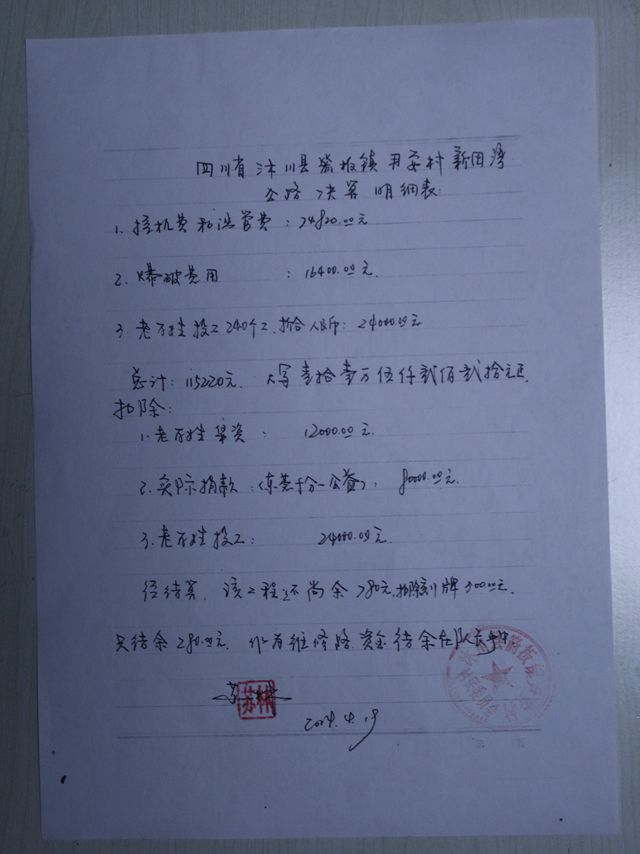 四川省沐川县箭板镇丹安村新田湾
公路决算明细表:
1.挖机费和涵管费:74820.00元
2.爆破费用:16400.00元.
3.老百姓投工240个工.折合人民币:24000.00元
总计:115220元.大写壹拾壹万伍仟贰佰贰拾元正.
扣除:
1.老百姓集资:12000.00元.
2.实际捐款:(东莞千分一公益):80000.00元.
3.老百姓投工:24000.00元.
经结算,该工程还尚余780元,扣除刻牌500.00元.
只结余280.00元.作为维修路资金结余在队长手中
苏林